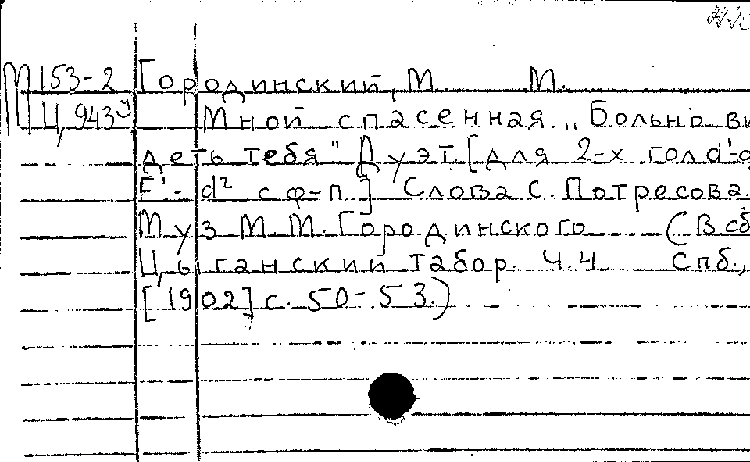 М 153-2 Городинский, М. М.
Ц 943 Мной спасенная „Больно ви
деть тебя" Дуэт [для 2-х гол d'-g
E'-d² с ф-п.] Слова С. Потресова
Муз М. М. Городинского (В сб
Цыганский табор. Ч.4 Спб.,
[1902] с. 50-53.)